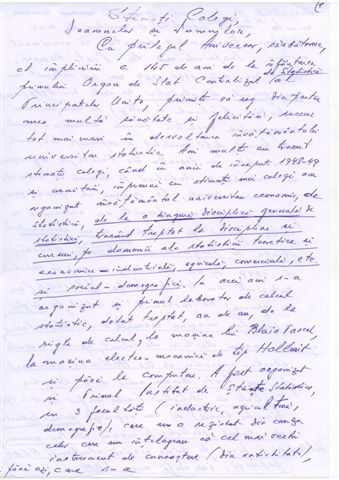 Stimați Colegi,
Doamnelor și Domnilor,
Cu prilejul Aniversării, sărbătorirea,
al împlinirii a 145 de ani de la înființarea
de Statistică
primului Organ de Stat Centralizat (al
Principatelor Unite, primiți vă rog din partea
mea multă sănătate și felicitări, succese
tot mai mari în dezvoltarea învățământului
universitar statistic. Ani mulți au trecut
stimați colegi, când în anii de început 1948-49
și următorii, împreună cu stimații mei colegi am
organizat învățământul universitar economic, de
statistică, de la o singură disciplină generală de
statistică, trecând treptat la discipline și
cursuri, pe domenii ale statisticii teoretice și
economice – industriale, agricole, comerciale, etc.
și social-demografice. În acei ani s-a
organizat și primul laborator de calcul
statistic, dotat treptat, an de an, de la
rigle de calcul, la mașina lui Blaise Pascal,
la mașina electro-mecanică de tip Hollerit
și până la computere. A fost organizat
și Primul Institut de Științe Statistice,
cu 3 facultăți (industrie, agricultură,
demografie), care nu a rezistat din cauza
celor care nu înțelegeau că cel mai vechi
instrument de cunoaștere (din antichitate),
până azi, care s-a